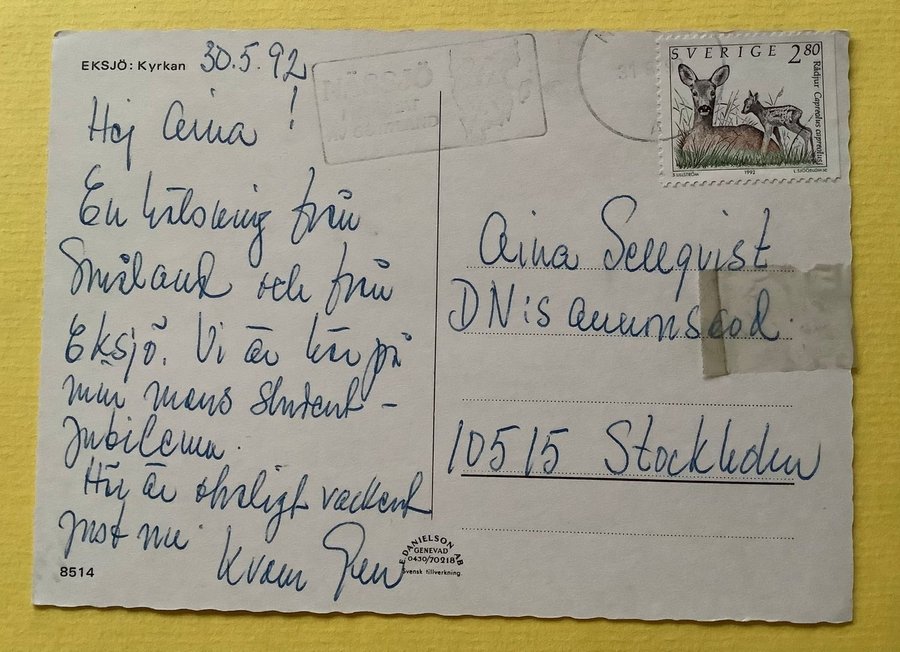 EKSJÖ: Kyrkan
30.5.92
Hej Aina!
En hälsning från
Småland och från
Eksjö. Vi är här på
min mans student-
jubileum.
Här är otroligt vackert
just nu.
8514
E. DANIELSON AB
GENEVAD
0430/70218
Svensk tillverkning
SVERIGE 2 80
Rådjur Capreolus capreolus
1992
Aina Sellqvist
DN:s annonsavd.
10515 Stockholm